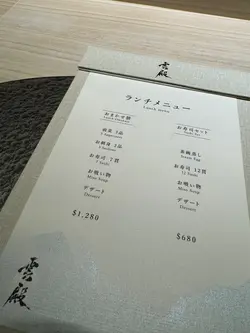 雲殿
ランチメニュー
Lunch menu
おまかせ膳
前菜 3品
2 Appetizers
お刺身 3品
3 Sashimi
お寿司 7貫
7 Sushi
お吸い物
Miso Soup
デザート
Dessert
$1,280
お寿司セット
Sushi Set
茶碗蒸し
Steam Egg
お寿司 12貫
12 Sushi
お吸い物
Miso Soup
デザート
Dessert
$680
雲殿